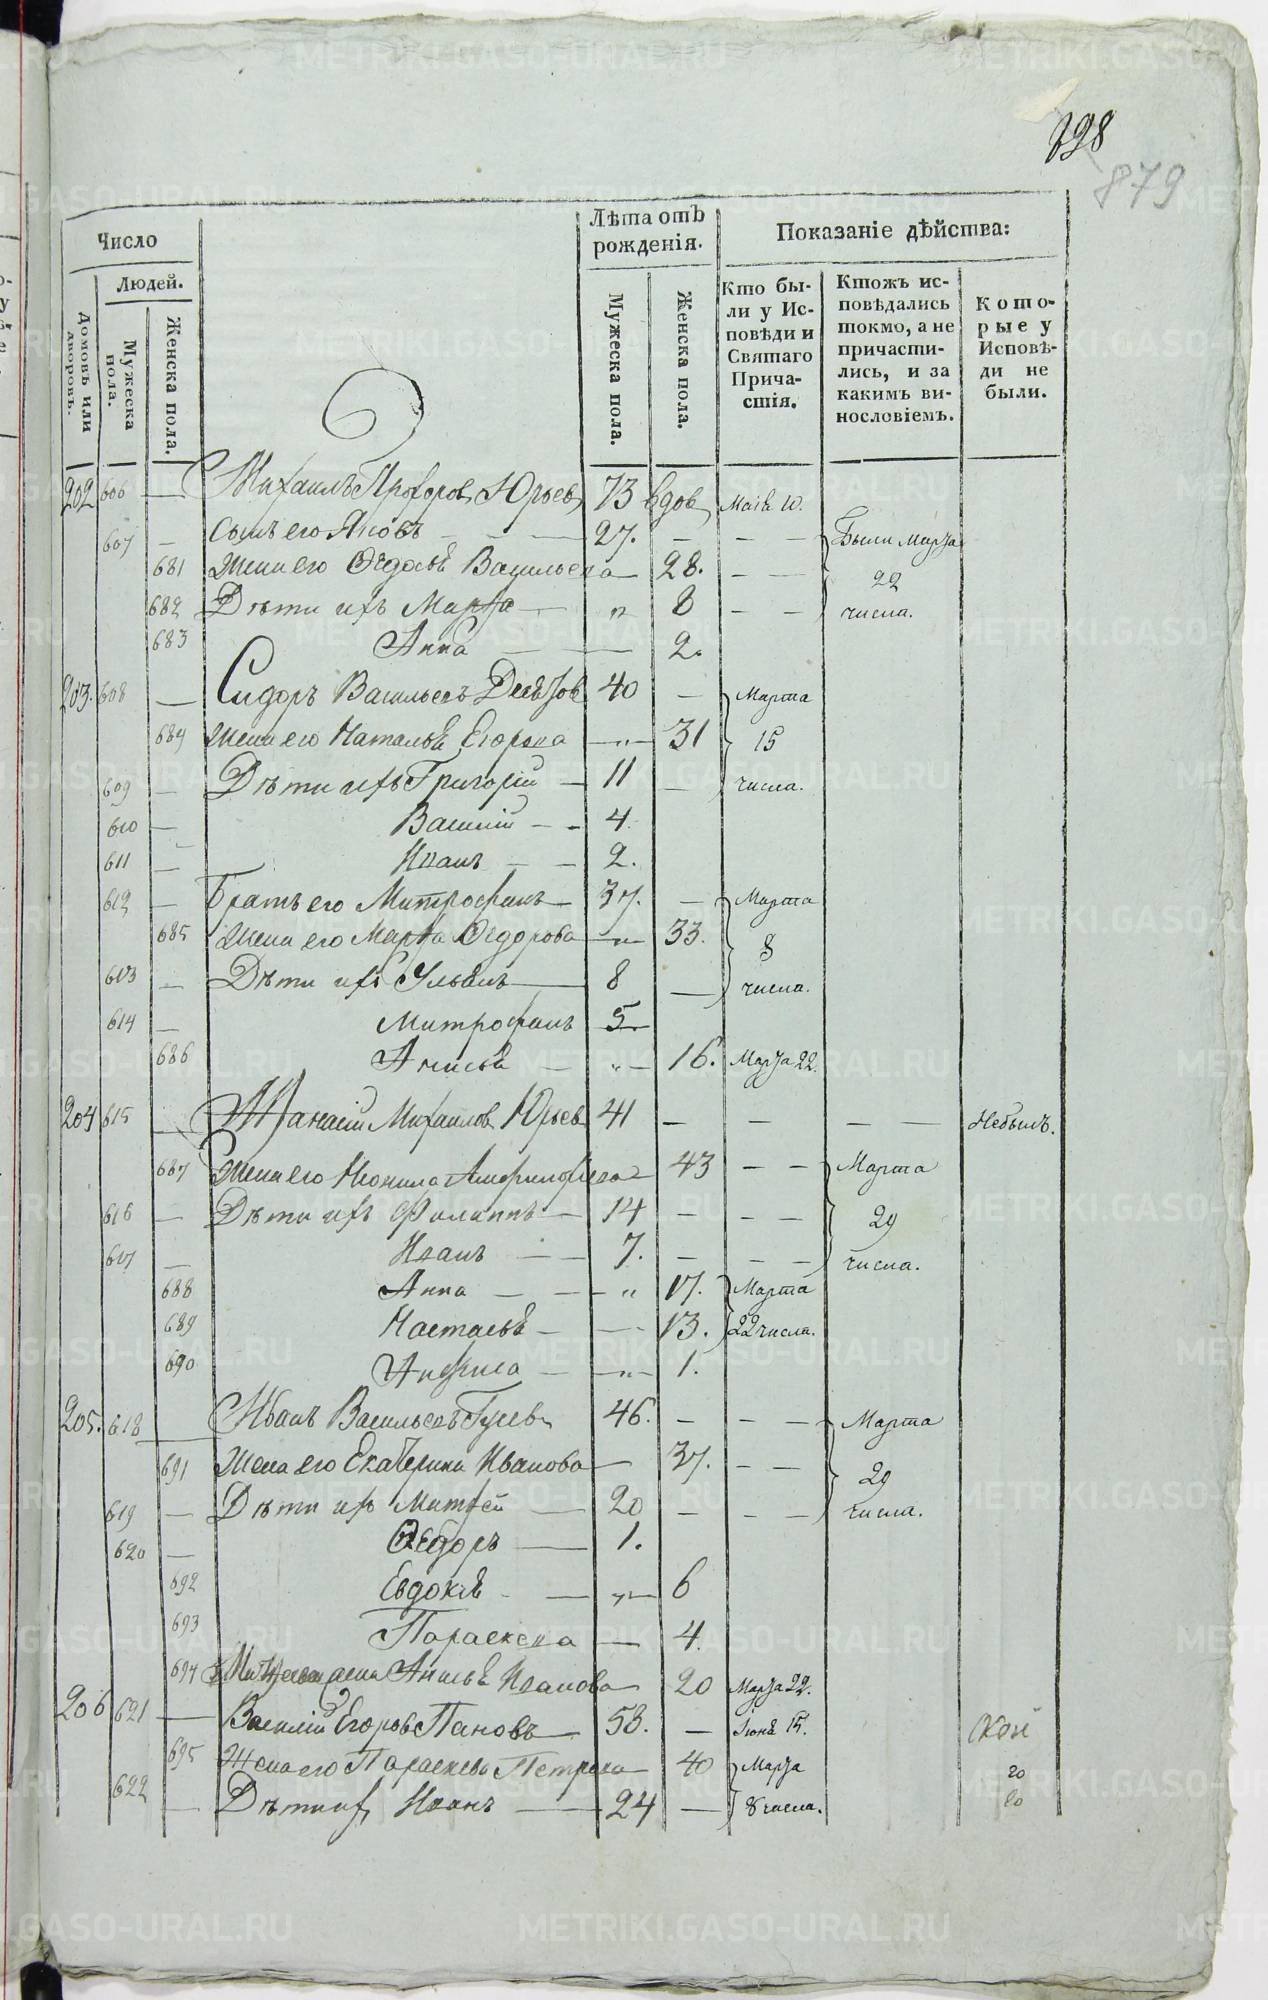 898
879
Число
Лѣта отъ рожденія.
Показаніе дѣйства:
Людей.
Домовъ или дворовъ.
Мужеска пола.
Женска пола.
Мужеска пола.
Женска пола.
Кто бы-
ли у Ис-
повѣди и
Святаго
Прича-
стія.
Ктожъ ис-
повѣдались
токмо, а не
причасти-
лись, и за
какимъ ви-
нословіемъ.
Кото-
рые у
Исповѣ-
ди не
были.
202 606 — Михаилъ Прохоров Юрьев 73 вдов Маія 10.
607 — Сынъ его Яковъ — 27. — — — Были Марта
681 Жена его Ѳедосья Васильева — 28. — — 22
682 Дѣти ихъ Марѳа — „ 8 — — числа.
683 Анна — — 2.
203. 608 — Сидоръ Васильевъ 40 — Марта
684 Жена его Наталья Егорова — „ — 31 15
609 — Дѣти ихъ Григорій — 11 — числа.
610 — Василій — 4.
611 — Иванъ — — 2.
612 — Братъ его Митрофанъ — 37. — Марта
685 Жена его Марѳа Ѳедорова — „ — 33. 8
613 — Дѣти ихъ Ульянъ — 8 — числа.
614 — Митрофанъ 5.
686 Анисья — „ — 16. Марта 22.
204 615 Афанасій Михаилов Юрьев 41 — — — — — Небылъ.
687 Жена его Неонила — 43 — — Марта
616 — Дѣти ихъ Филиппъ — 14 — — — 29
617 — Иванъ — — 7. — — — числа.
688 Анна — — — „ 17. Марта
689 Настасья — — 13. 22 числа.
690 Анфиса — — „ — 1.
205. 618 Иванъ Васильевъ Гусев 46. — — — Марта
691 Жена его Екатерина Иванова — 37. — — 29
619 — Дѣти ихъ — 20 — — — числа.
620 — Ѳедоръ — 1.
692 Евдокія — — „ — 6
693 Параскева — 4.
694 жена Анисья Иванова — 20 Марта 22.
206 621 — Василій Егоров Пановъ — 58. — Іюня 15.
695 Жена его Параскева Петрова — 40 Марта 20
622 — Дѣти их Иванъ — 24 — 8 числа.
METRIKI.GASO-URAL.RU